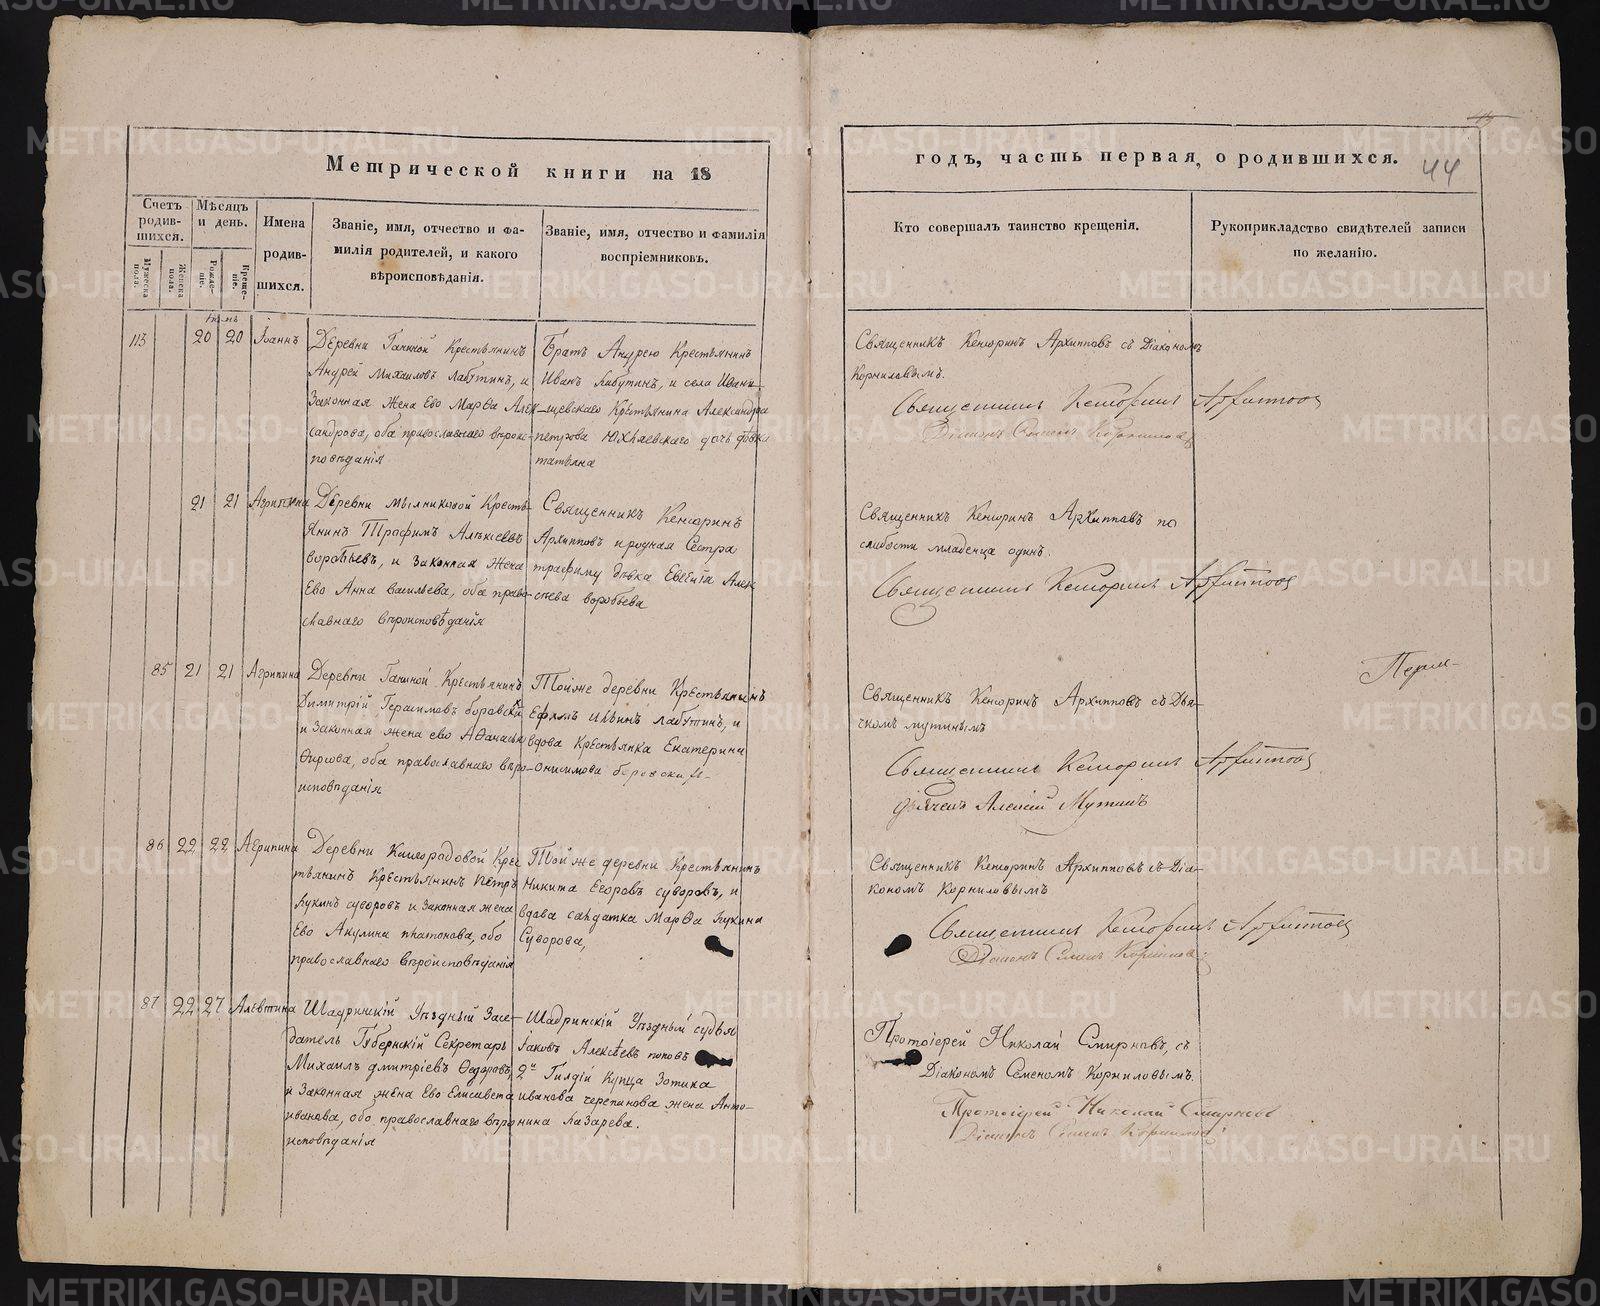 Метрической книги на 18
годъ, часть первая, о родившихся.
44
Счетъ родив-шихся.
Мѣсяцъ и день.
Имена родив-шихся.
Званіе, имя, отчество и фа-
милія родителей, и какого
вѣроисповѣданія.
Званіе, имя, отчество и фамилія
воспріемниковъ.
Кто совершалъ таинство крещенія.
Рукоприкладство свидѣтелей записи
по желанію.
Мужеска пола.
Женска пола.
Рожде-ніе.
Креще-ніе.
113 20 20 Іоаннъ
Деревни Ганиной Крестьянинъ
Андрей Михаиловъ Лабутинъ, и
Законная Жена Ево Марѳа Алек-
сандрова, оба православнаго вѣрои-
повѣданія
Братъ Андрею Крестьянинъ
Иванъ Лабутинъ, и села Ивани-
щевскаго Крестьянина Александра
петрова дочь дѣвка
татьяна
Священникъ Кенсоринъ Архипповъ съ Діакономъ
Корниловымъ.
Священникъ Кенсоринъ Архипповъ
Діаконъ Семенъ Корниловъ
21 21 Агрипина
Деревни мыльниковой Кресть-
янинъ Трофимъ Алексіевъ
воробьевъ, и Законная Жена
Ево Анна васильева, оба право-
славнаго вѣроисповѣданія
Священникъ Кенсоринъ
Архипповъ и родная Сестра
трафиму дѣвка Евгенія Алек
сіева воробьева
Священникъ Кенсоринъ Архипповъ по
слабости младенца одинъ.
Священникъ Кенсоринъ Архипповъ
85 21 21 Агрипина
Деревни Ганиной Крестьянинъ
Димитрій Герасимовъ боровскій
и Законная жена ево Аѳанасья
Ѳирсова, оба православнаго вѣро-
исповѣданія
Тойже деревни Крестьянинъ
Ефимъ Ильинъ Лабутинъ, и
вдова Крестьянка Екатерина
Онисимова боровских-
Священникъ Кенсоринъ Архипповъ съ Дья-
чкомъ мутинымъ
Священникъ Кенсоринъ Архипповъ
дьячекъ Алексій Мутинъ
86 22 22 Агрипина
Деревни Крес
тьянинъ Крестьянинъ Петръ
Лукинъ суворовъ и Законная жена
Ево Акулина платонова, обо
православнаго вѣроисповѣданія
Той же деревни Крестьянинъ
Никита Егоровъ суворовъ, и
вдова салдатка Марѳа Лукина
Суворова,
Священникъ Кенсоринъ Архипповъ съ Діа-
кономъ Корниловымъ
Священникъ Кенсоринъ Архипповъ
Діаконъ Семенъ Корниловъ
87 22 27 Алевтина
Шадринскій Уѣздный Засе-
датель Губернскій Секретарь
Михаилъ дмитріевъ Ѳедоровъ,
и Законная жена Ево Елисавета
иванова, обо православнаго вѣро
исповѣданія
Шадринскій Уѣздный судья
Іаковъ Алексѣевъ поповъ
2й Гилдіи Купца Зотика
иванова черепанова жена Анто-
нина Лазарева.
Протоіерей Николай Смирновъ, съ
Діакономъ Семеномъ Корниловымъ.
Протоіерей Николай Смирновъ
Діаконъ Семенъ Корниловъ
METRIKI.GASO-URAL.RU